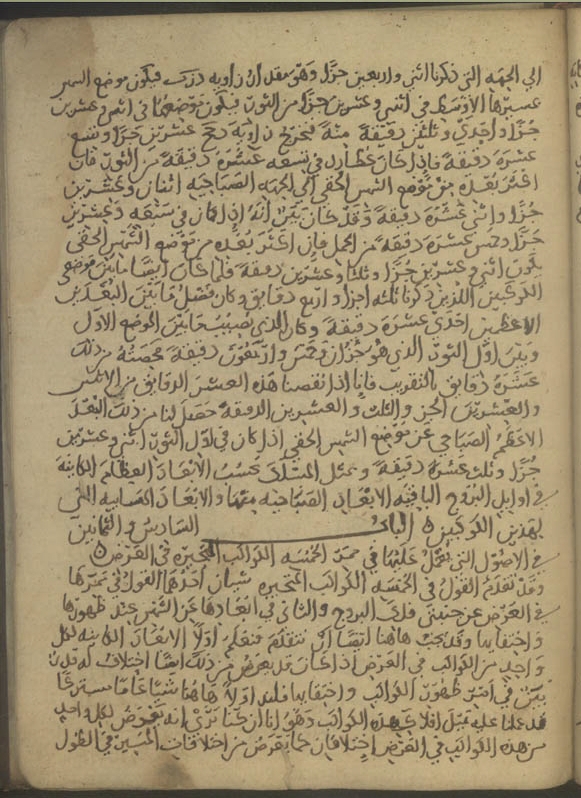 الي الجهه التي ذكرنا اثني واربعين جزًا وهو معدل ان زاويه د ز ك فيكون موضع الشمس
عسيرها الاوسط في اثني وعشرين جزًا من الثور فيكون موضعها في اثنين وعشرين
جزًا واحدي وثلثين دقيقة منه فتخرج زاويه د ح عشرين جزًا وتسع
عشرة دقيقة فاذا كان عطارد في تسعه عشرة دقيقة من الثور فان
اكثر بعده من موضع الشمس الخفي الي الجهه الصباحيه اثنان وعشرين
جزًا واثني عشرة دقيقة وقد كان تبين انه اذا كان في سبعه وعشرين
جزًا وخمس عشرة دقيقه من الحمل فان اكثر بعده من موضع الشمس الخفي
يكون اثني وعشرين جزًا وثلثًا وعشرين دقيقة فلما كان ايضا ما بين موضعي
الكوكبين اللذين ذكرنا ثلثه اجزا واربع دقايق وكان فضل ما بين البعدين
الاعظمين احدي عشرة دقيقة وكان الذي يصيب ما بين الموضع الاول
وبين اول الثور الذي هو جزان وخمس واربعون دقيقة حصته من ذلك
عشرة دقايق بالتقريب فانا اذا نقصنا هذه العشر الدقايق من الاثنين
والعشرين الجز والثلث والعشرين الدقيقة حصل لنا من ذلك البعد
الاعظم الصباحي عن موضع الشمس الخفي اذا كان في اول الثور اثني وعشرين
جزًا وثلث عشرة دقيقة وبمثل المسلك نحسب الابعاد العظام الكاينه
في اوايل البروج الباقيه الابعاد الصباحيه منها والابعاد المسايية التي
لهذين الكوكبين الباب السادس والثمانين
في الاصول التي يعمل عليها في ممر الخمسه الكواكب المتحيره في العرض
وقد تقدم القول في الخمسه الكواكب المتحيره شيان احدهما القول في ممرها
في العرض عن جنبتي فلك البروج والثاني في ابعادها عن الشمس عند ظهورها
واختفايها وقد يجب هاهنا ايضا ان نتقدم فنعلم اولًا الابعاد الكاينه لكل
واحد من الكواكب في العرض اذا كان قد يعرض من ذلك ايضا اختلاف له قدر
بين في امر ظهور الكواكب واختفايها فلنبدا اولًا هاهنا شيًا عامًا مشتركًا
قد عملنا عليه ميل افلاك هذه الكواكب وهو انا ان كنا نري انه يعرض لكل واحد
من هذه الكواكب في العرض اختلافان كما يعرض من اختلافات المسير في الطول